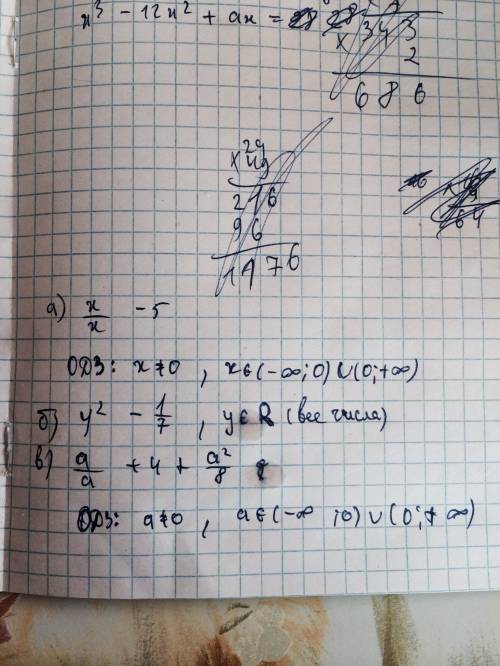 x³ - 12x² + ax =
343
x 2
686
29
x 49
216
96
1176
а) x/x - 5
ОДЗ: x≠0, x∈(-∞;0)∪(0;+∞)
б) y² - 1/7, y∈R (все числа)
в) a/a + 4 + a²/8
ОДЗ: a≠0, a∈(-∞;0)∪(0;+∞)